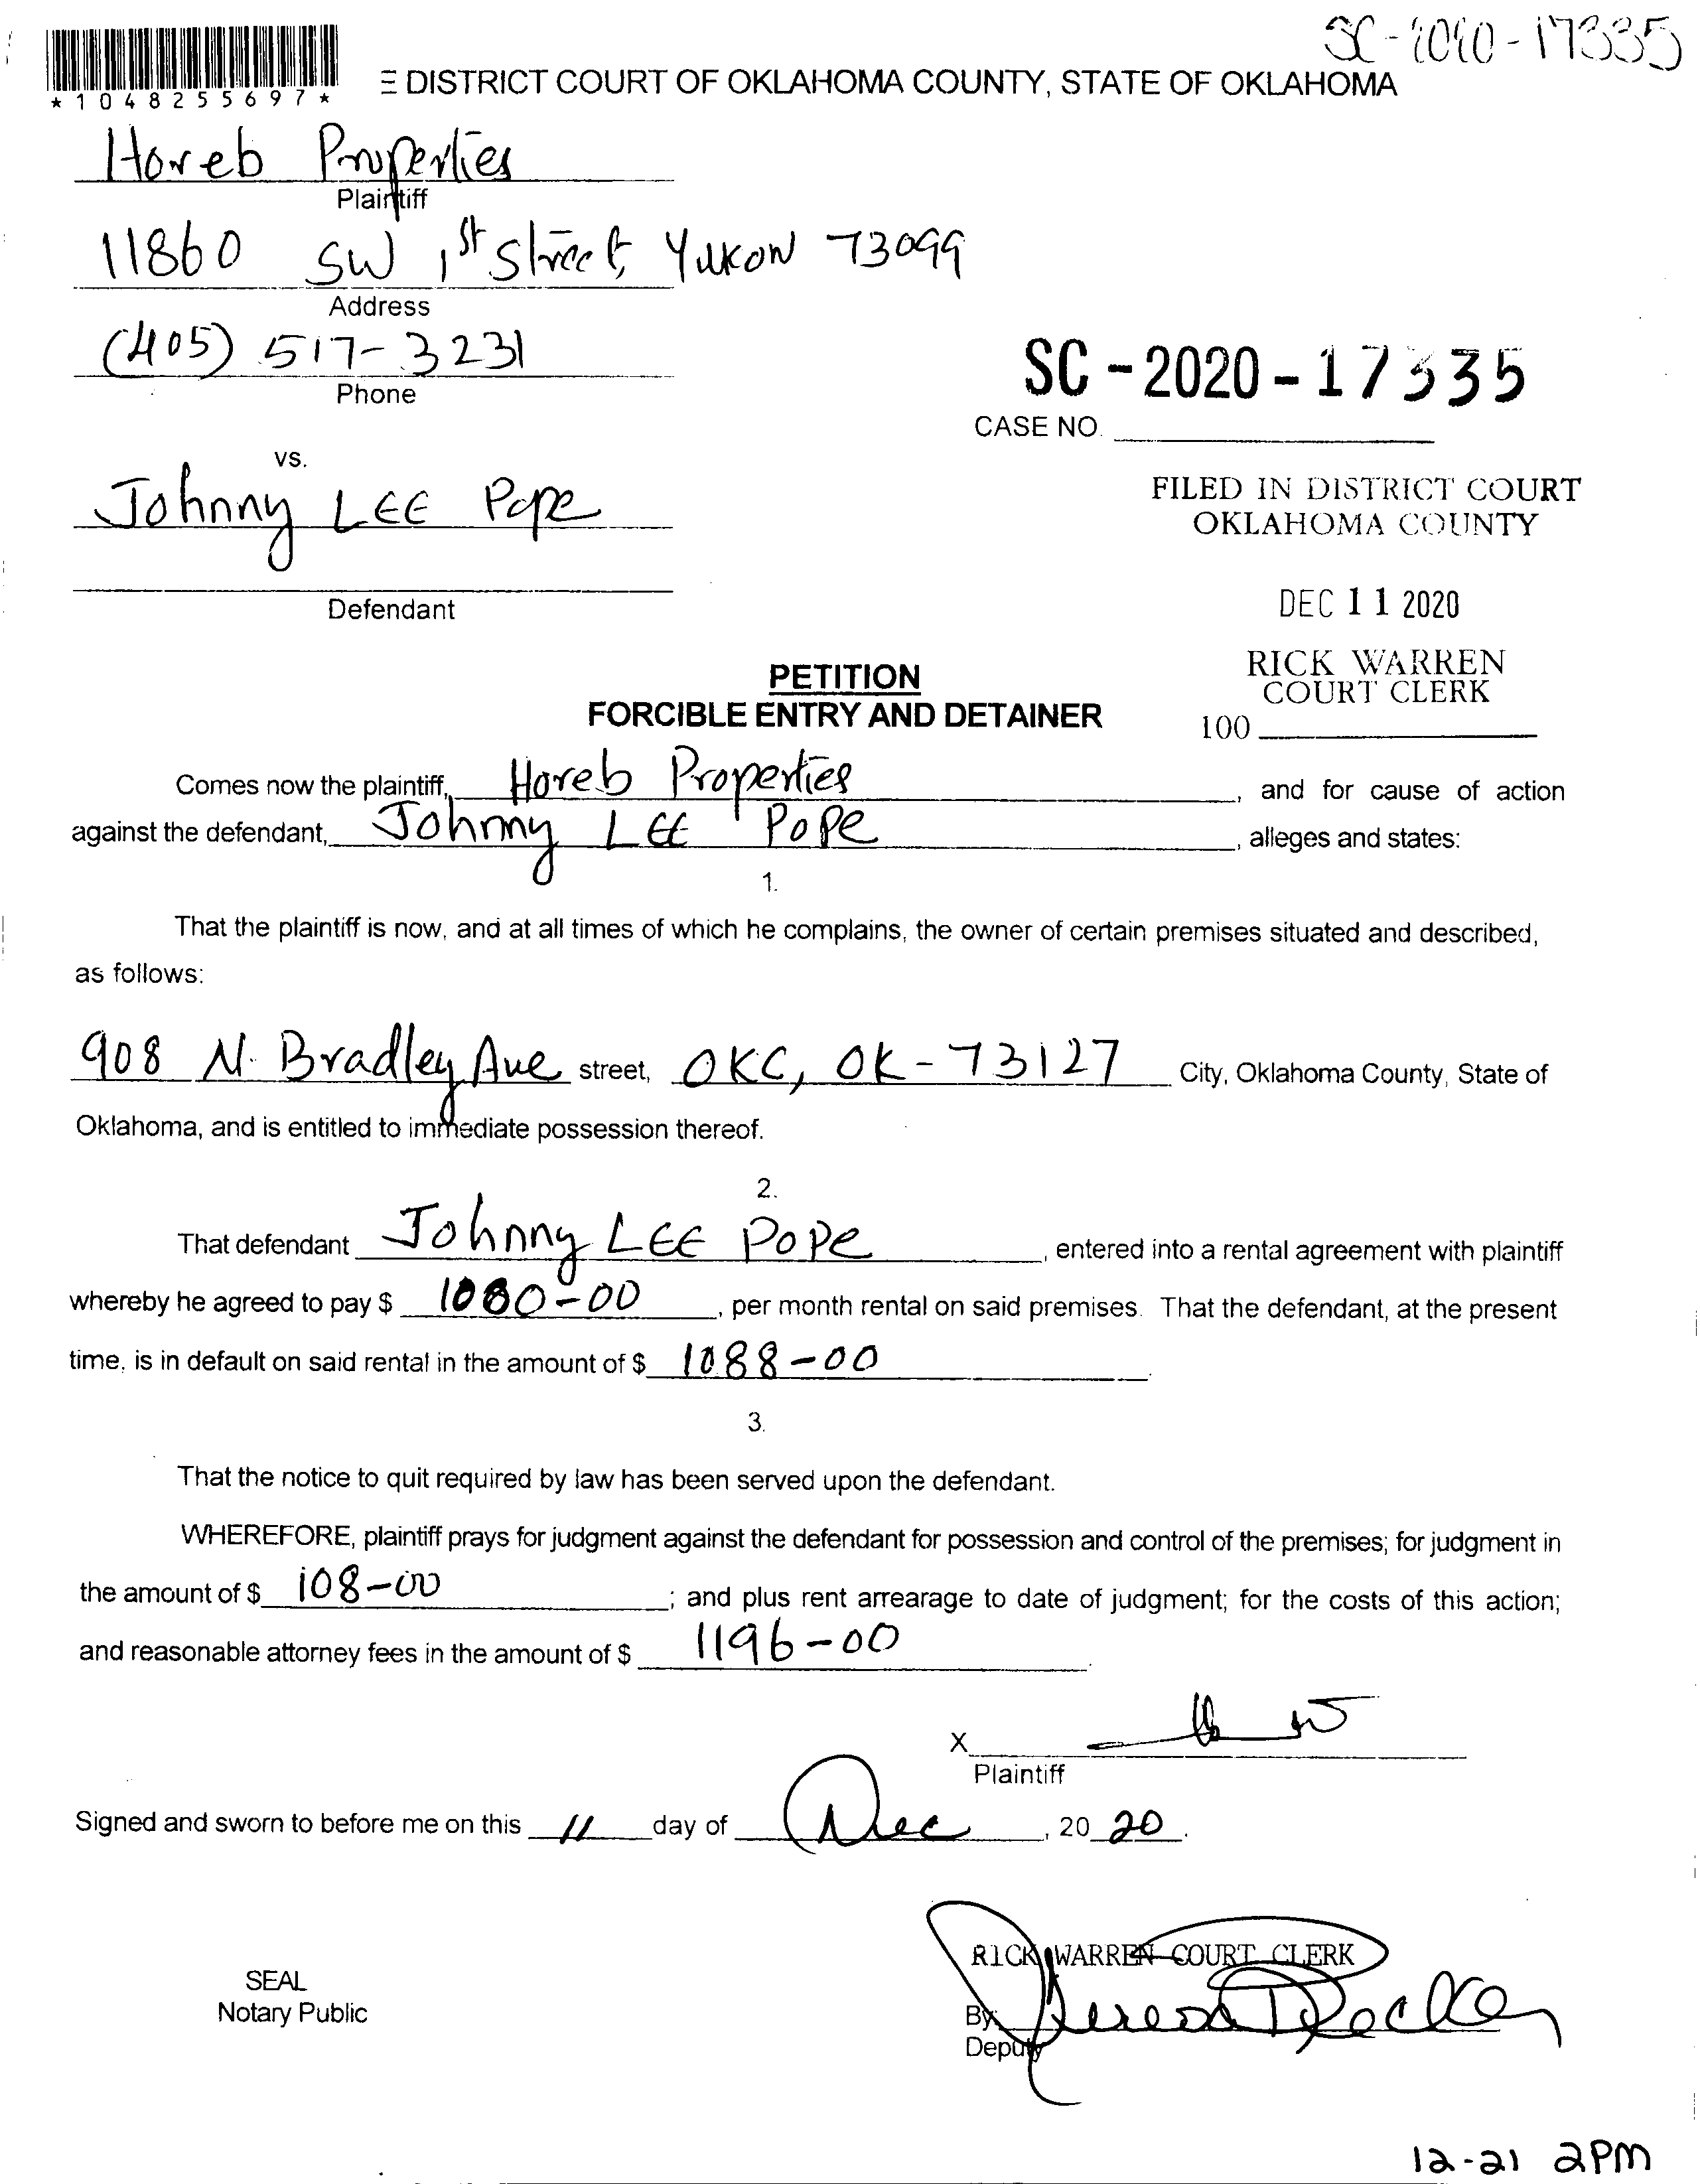 SC-2020-17335
*1048255697*
E DISTRICT COURT OF OKLAHOMA COUNTY, STATE OF OKLAHOMA
Horeb Properties
Plaintiff
11860 SW 1st Street, Yukon 73099
Address
(405) 517-3231
Phone
SC-2020-17335
CASE NO.
vs.
Johnny LEE Pope
FILED IN DISTRICT COURT
OKLAHOMA COUNTY
Defendant
DEC 11 2020
RICK WARREN
COURT CLERK
100
PETITION
FORCIBLE ENTRY AND DETAINER
Comes now the plaintiff, Horeb Properties, and for cause of action
against the defendant, Johnny LEE Pope, alleges and states:
1.
That the plaintiff is now, and at all times of which he complains, the owner of certain premises situated and described,
as follows:
908 N. Bradley Ave street, OKC, OK-73127 City, Oklahoma County, State of
Oklahoma, and is entitled to immediate possession thereof.
2.
That defendant Johnny LEE Pope, entered into a rental agreement with plaintiff
whereby he agreed to pay $ 1080-00, per month rental on said premises. That the defendant, at the present
time, is in default on said rental in the amount of $ 1088-00.
3.
That the notice to quit required by law has been served upon the defendant.
WHEREFORE, plaintiff prays for judgment against the defendant for possession and control of the premises; for judgment in
the amount of $ 108-00; and plus rent arrearage to date of judgment; for the costs of this action;
and reasonable attorney fees in the amount of $ 1196-00.
X
Plaintiff
Signed and sworn to before me on this 11 day of Dec, 20 20.
RICK WARREN COURT CLERK
SEAL
Notary Public
By:
Deputy
12-21 2PM